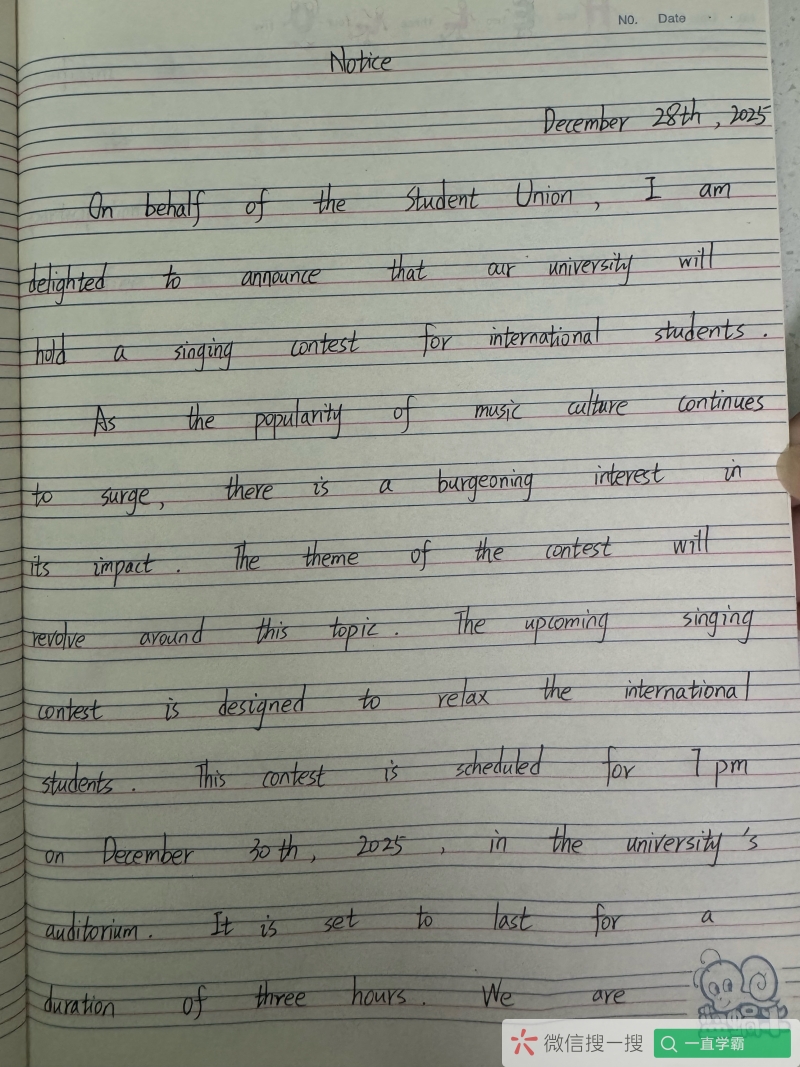 NO. Date
Notice
December 28th, 2025
On behalf of the Student Union, I am
delighted to announce that our university will
hold a singing contest for international students.
As the popularity of music culture continues
to surge, there is a burgeoning interest in
its impact. The theme of the contest will
revolve around this topic. The upcoming singing
contest is designed to relax the international
students. This contest is scheduled for 7 pm
on December 30th, 2025, in the university's
auditorium. It is set to last for a
duration of three hours. We are
微信搜一搜
一直学霸